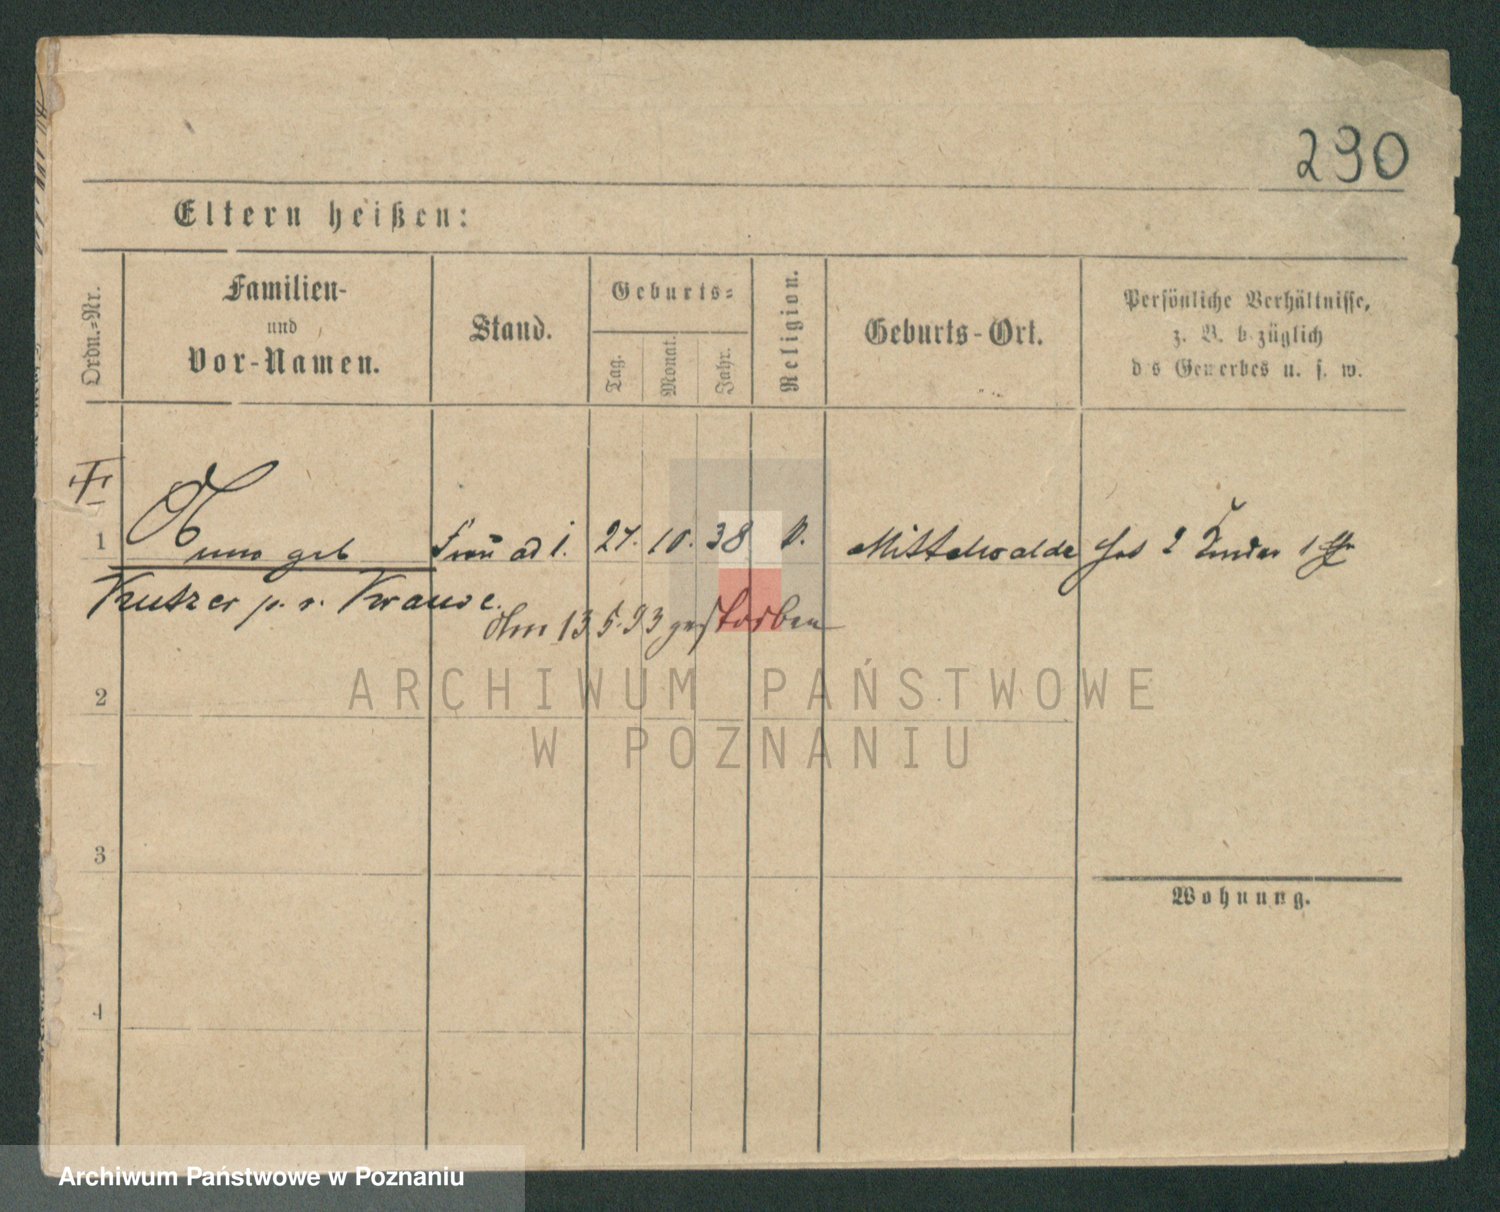 290
Eltern heißen:
Ordn.-Nr.
Familien-
und
Vor-Namen.
Stand.
Geburts-
Tag.
Monat.
Jahr.
Religion.
Geburts-Ort.
Persönliche Verhältnisse,
z. B. bezüglich
des Gewerbes u. s. w.
1 Anna geb Frau ad 1. 27. 10. 38 Mittelwalde hat 2 Kinder
Kutzer Krause.
Am 13 5. 93 gestorben
ARCHIWUM PAŃSTWOWE
2
W POZNANIU
3
Wohnung.
4
Archiwum Państwowe w Poznaniu